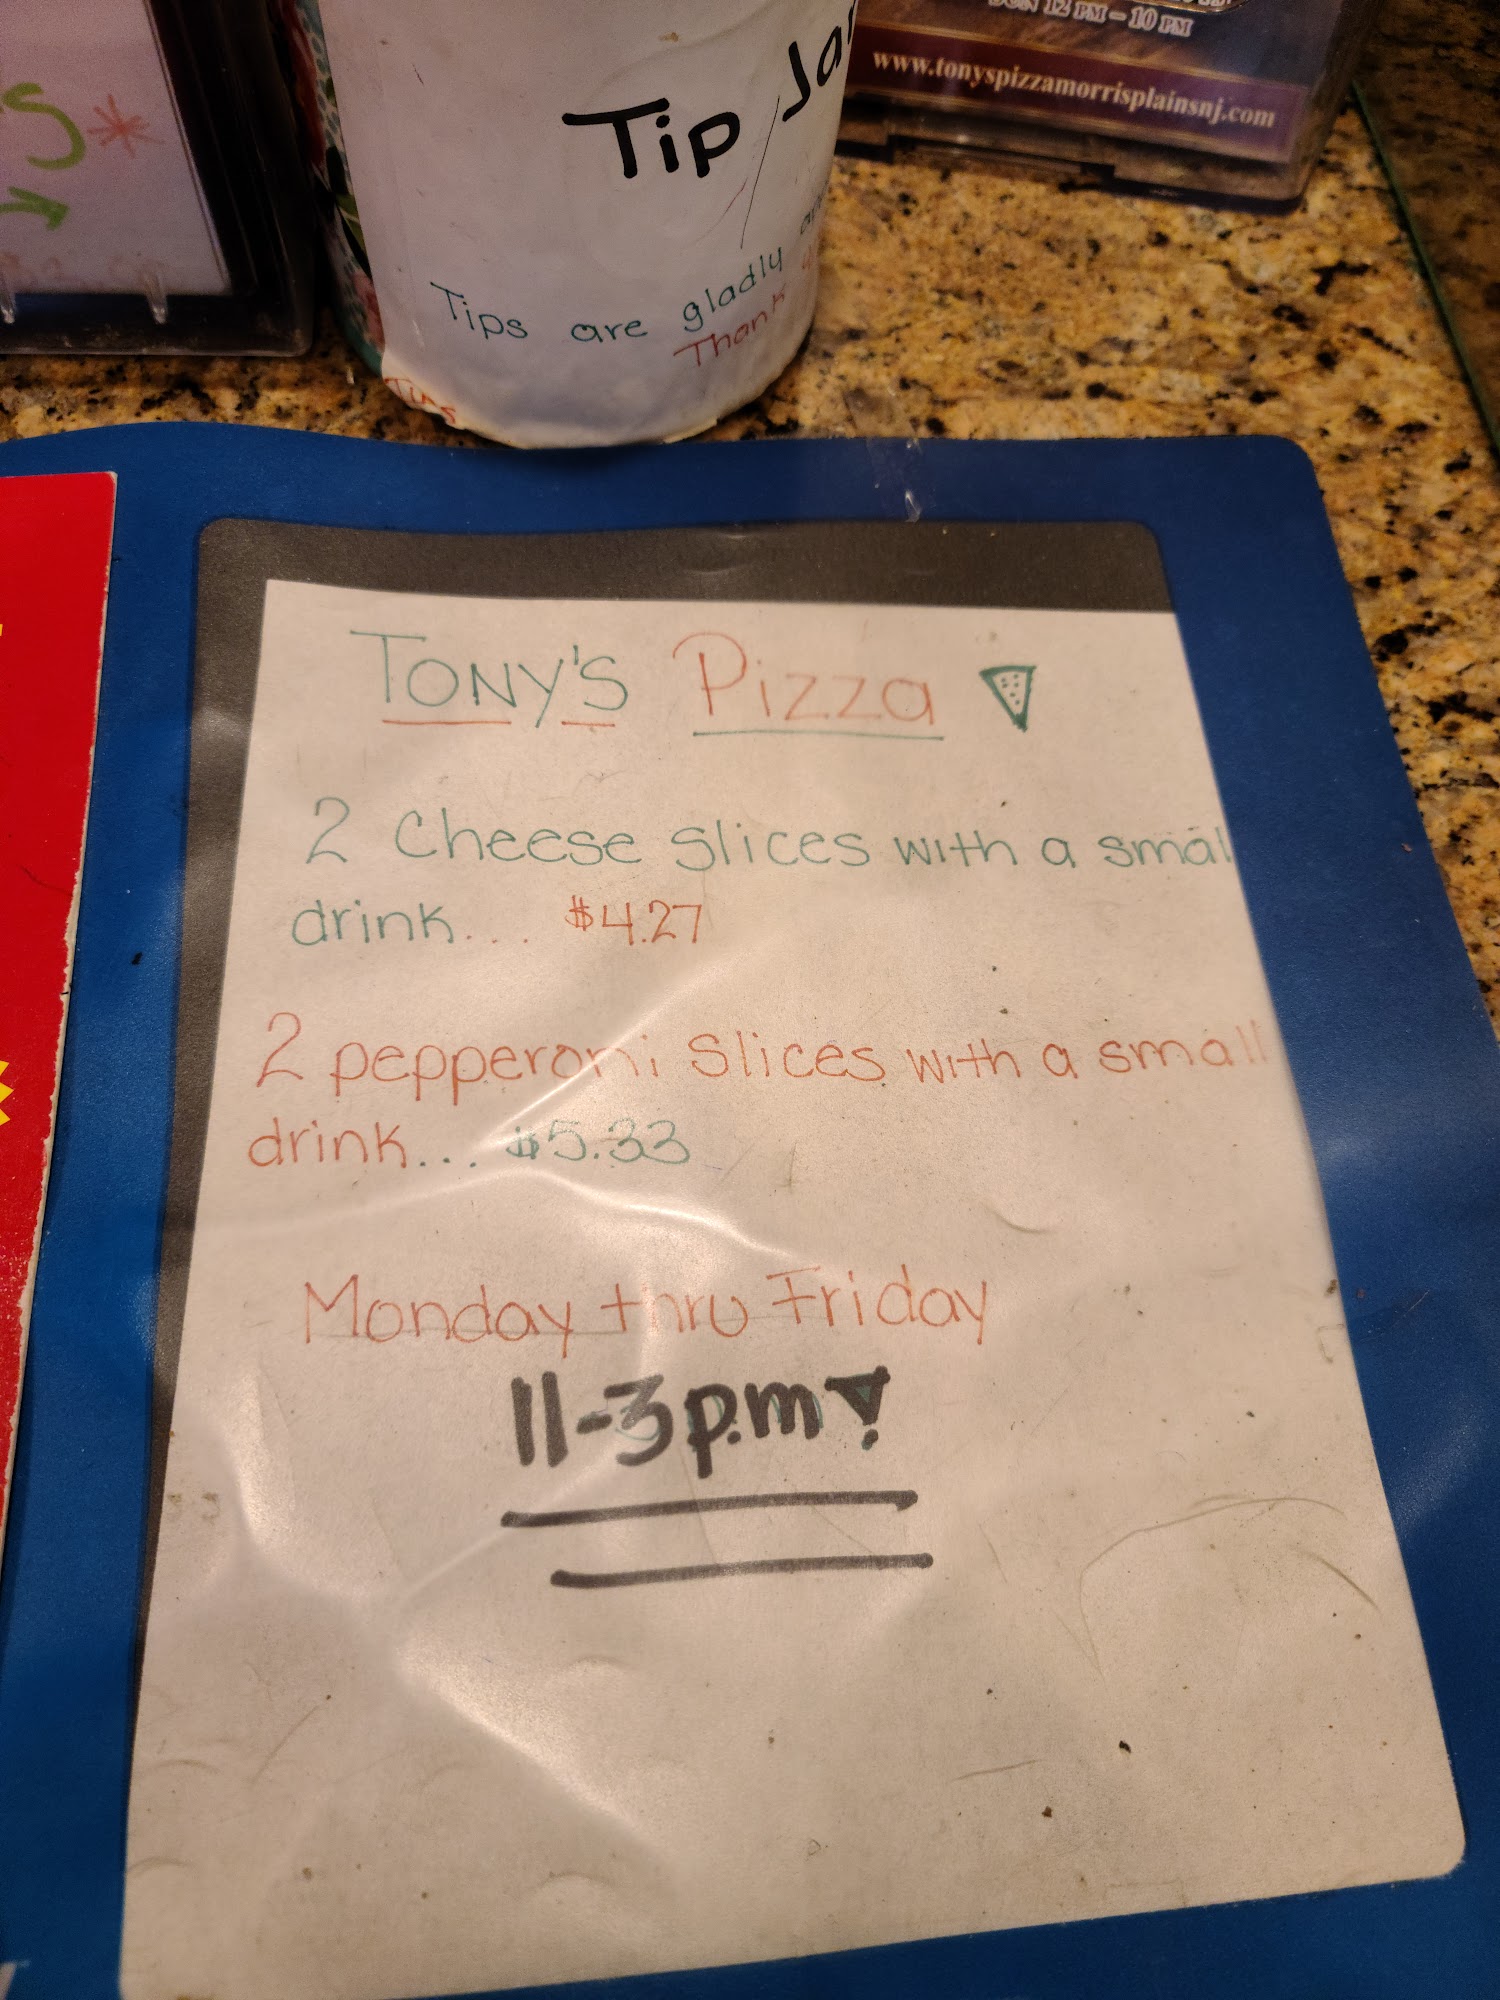 SUN 12 PM – 10 PM
www.tonyspizzamorrisplainsnj.com
Tip Jar
Tips are gladly
Thank
Tony's Pizza
2 Cheese slices with a small
drink... $4.27
2 pepperoni slices with a small
drink... $5.33
Monday thru Friday
11-3p.m!